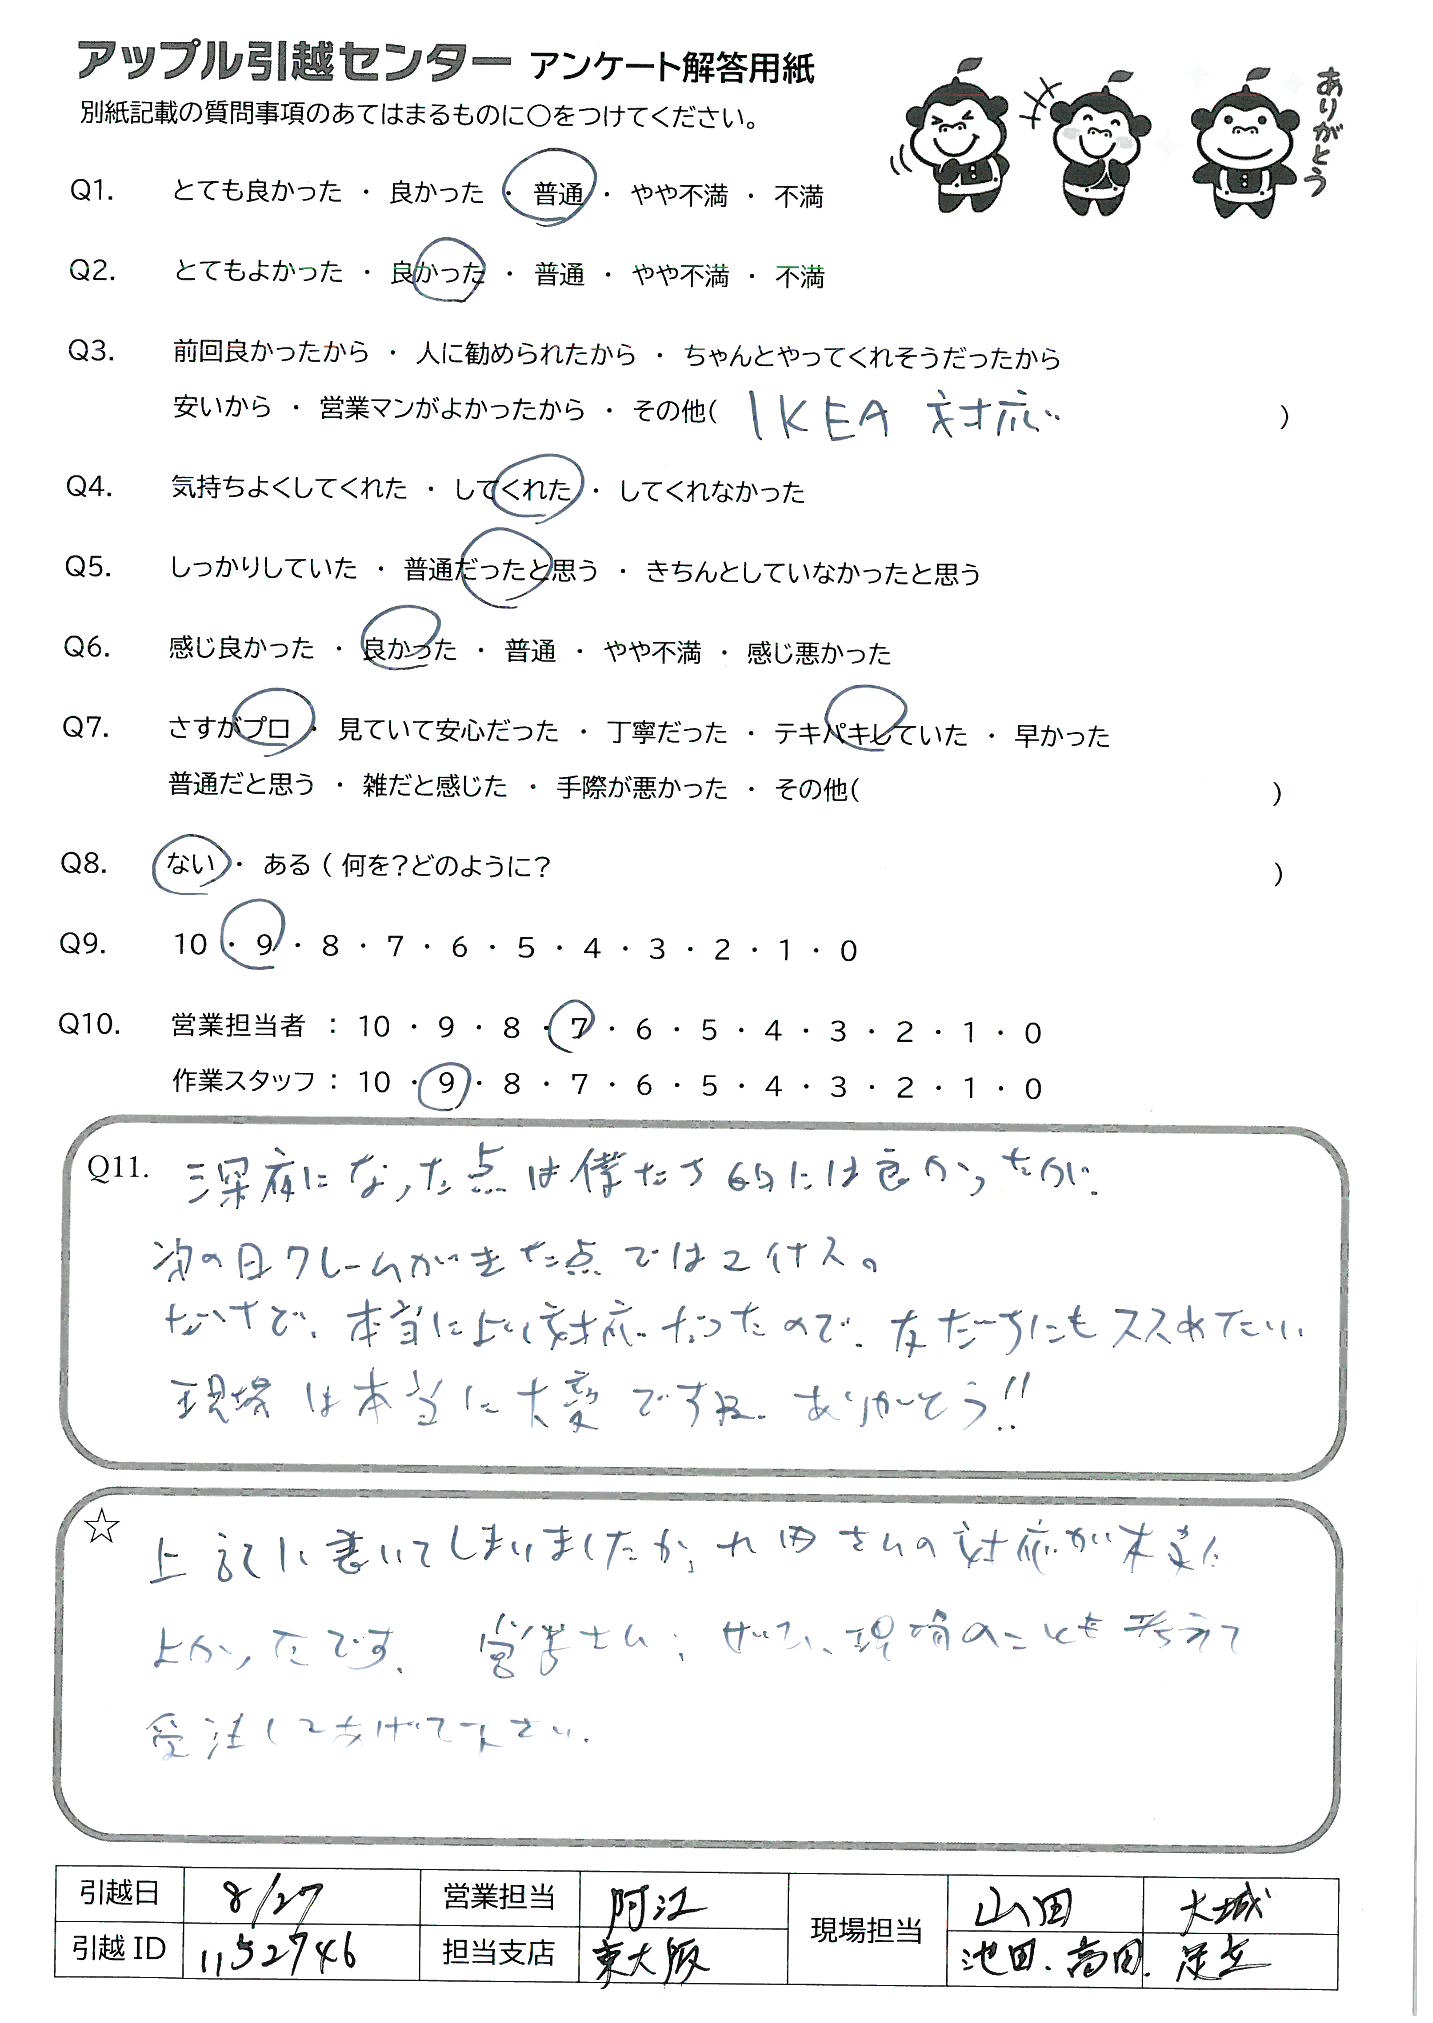 アップル引越センター アンケート解答用紙
別紙記載の質問事項のあてはまるものに○をつけてください。
ありがとう
Q1. とても良かった ・ 良かった ・ 普通 ・ やや不満 ・ 不満
Q2. とてもよかった ・ 良かった ・ 普通 ・ やや不満 ・ 不満
Q3. 前回良かったから ・ 人に勧められたから ・ ちゃんとやってくれそうだったから
安いから ・ 営業マンがよかったから ・ その他( IKEA 対応 )
Q4. 気持ちよくしてくれた ・ してくれた ・ してくれなかった
Q5. しっかりしていた ・ 普通だったと思う ・ きちんとしていなかったと思う
Q6. 感じ良かった ・ 良かった ・ 普通 ・ やや不満 ・ 感じ悪かった
Q7. さすがプロ ・ 見ていて安心だった ・ 丁寧だった ・ テキパキしていた ・ 早かった
普通だと思う ・ 雑だと感じた ・ 手際が悪かった ・ その他( )
Q8. ない ・ ある ( 何を?どのように? )
Q9. 10 ・ 9 ・ 8 ・ 7 ・ 6 ・ 5 ・ 4 ・ 3 ・ 2 ・ 1 ・ 0
Q10. 営業担当者 : 10 ・ 9 ・ 8 ・ 7 ・ 6 ・ 5 ・ 4 ・ 3 ・ 2 ・ 1 ・ 0
作業スタッフ : 10 ・ 9 ・ 8 ・ 7 ・ 6 ・ 5 ・ 4 ・ 3 ・ 2 ・ 1 ・ 0
Q11. 深夜になった点は僕たち的には良かったが、
次の日クレームがきた点ではマイナス。
だけで、本当に良い対応だったので、友だちにもススめたい
現場は本当に大変ですね。ありがとう!!
☆ 上記に書いてしまいましたが、 さんの対応が本当に
よかったです。 営業さん、ぜひ、現場のことも考えて
受注してあげて下さい。
引越日 8/27 営業担当 阿江 現場担当 山田 大城
引越 ID 1152746 担当支店 東大阪 池田.高田. 足立